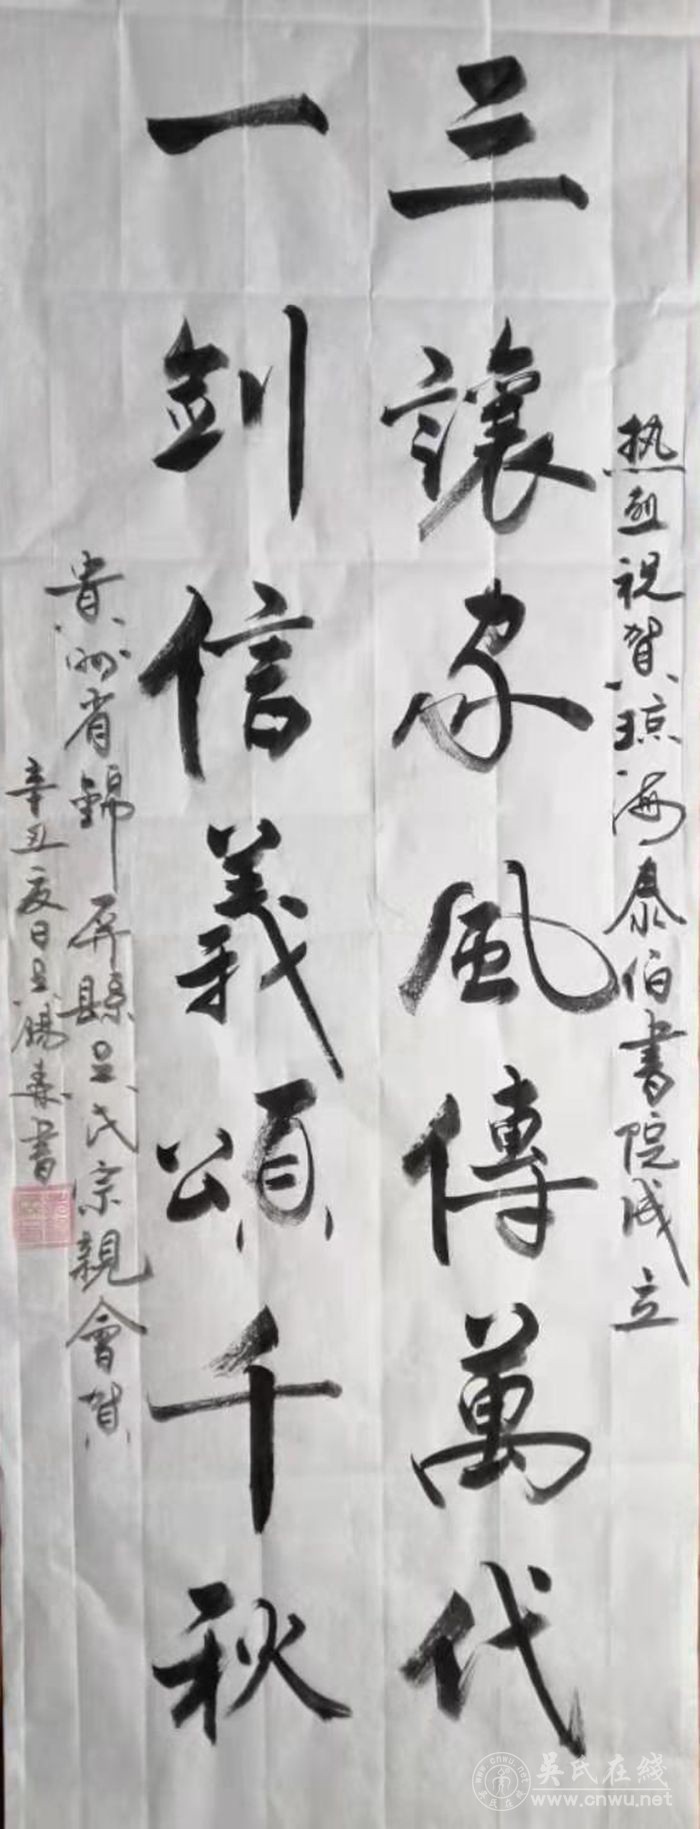 热烈祝贺琼海泰伯書院成立
三讓家風傳萬代
一劍信義頌千秋
貴州省錦屏縣吴氏宗親會賀
辛丑夏日吴錫泰書
吴氏在綫
www.cnwu.net